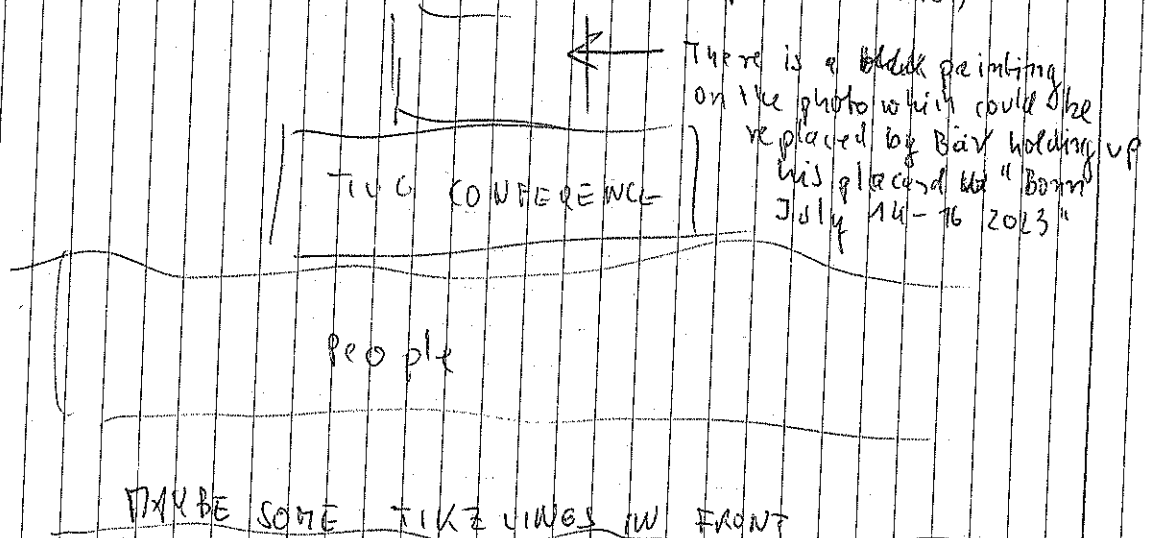 There is a painting
on the photo which could be
replaced by Bär holding up
his placard "Bonn
July 14-16 2023"
TUG CONFERENCE
People
MAYBE SOME TIKZ LINES IN FRONT